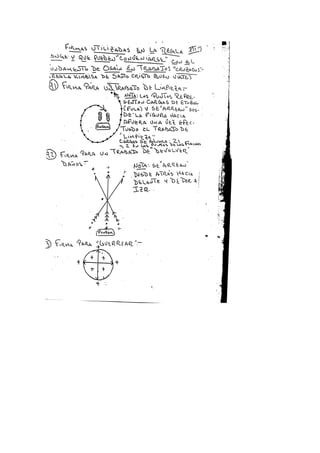 FIRMAS UTILIZADAS EN LA REGLA
Y QUE PUEDEN "CONGENIARSE" CON EL
FUNDAMENTO DE OSAIN EN TRABAJOS "CRUZADOS":-
(REGLA KIMBISA DE SANTO CRISTO BUEN VIAJE)
1) FIRMA PARA UN TRABAJO DE LIMPIEZA:-
NOTA: LOS PUNTOS REPRE-
SENTAN CARGAS DE
(FULA) Y SE "ARREAN" DES-
DE LA FIGURA HACIA
AFUERA UNA VEZ EFEC-
TUADO EL TRABAJO DE
LIMPIEZA:-
CARGAS DE : 21
LAS PUNTAS DE LAS
2) FIRMA PARA UN TRABAJO DE "DEVOLVER"
DAÑOS"-
NOTA: SE "ARREAN"
DESDE ATRÁS HACIA
DELANTE Y DE DER. A
IZQ.
3) FIRMA PARA "GUERREAR"-